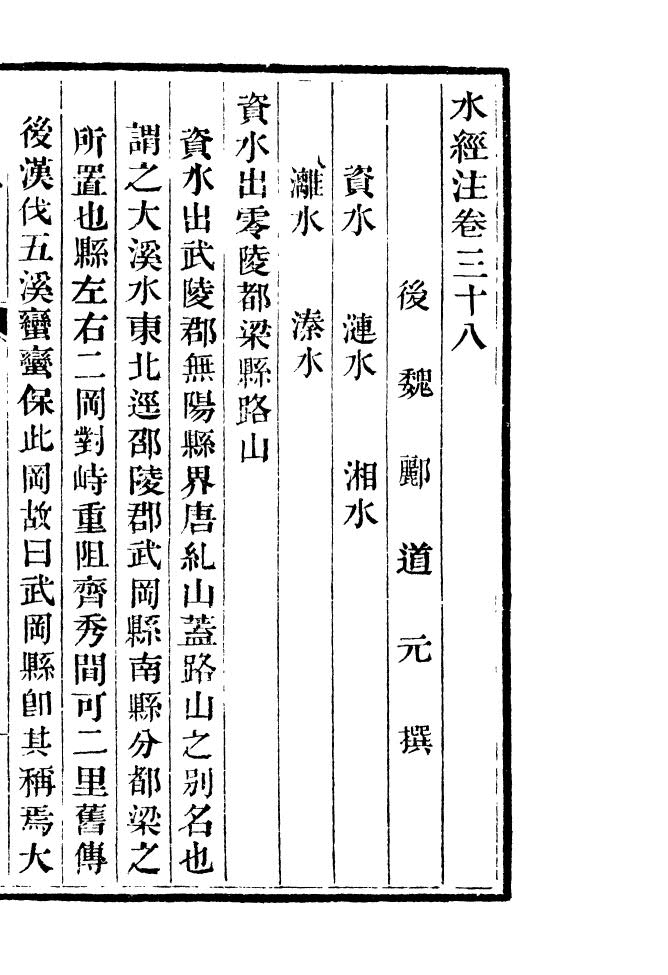 水經注卷三十八
後魏酈道元撰
資水　漣水　湘水
灕水　溱水
資水出零陵都梁縣路山
資水出武陵郡無陽縣界唐糺山蓋路山之别名也
謂之大溪水東北逕邵陵郡武岡縣南縣分都梁之
所置也縣左右二岡對峙重阻齊秀間可二里舊傳
後漢伐五溪蠻蠻保此岡故曰武岡縣卽其稱焉大